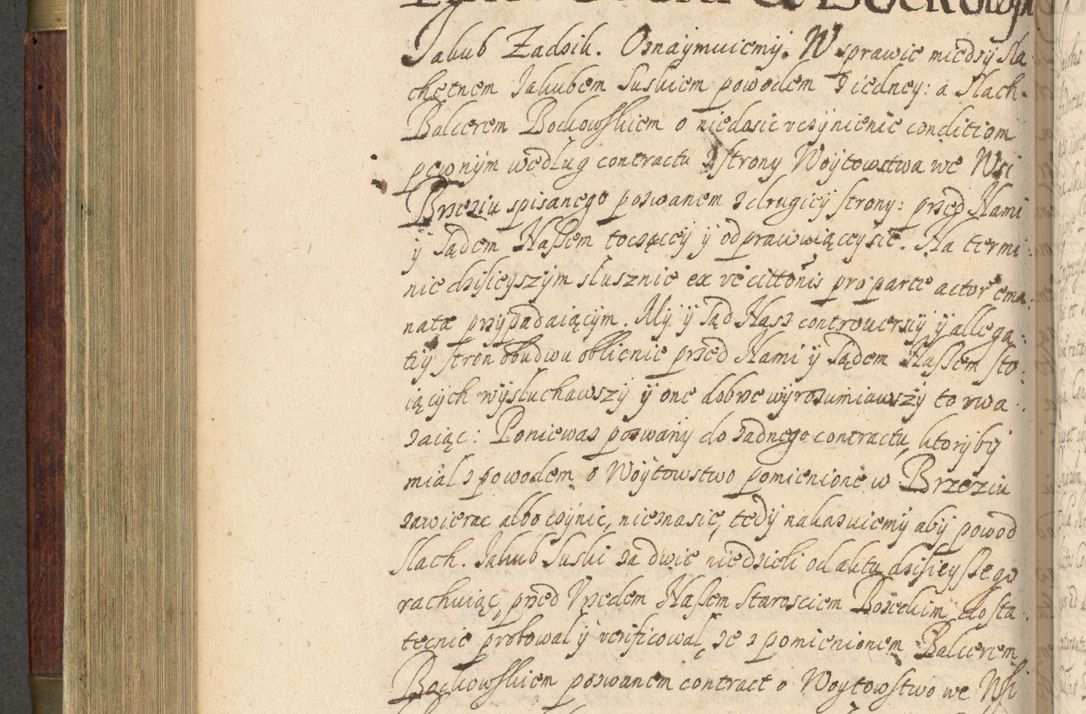 Jakub Zadzik. Oznaymuiemÿ. W sprawie międzÿ sla
chetnem Jakubem Suskiem powodem z iedneÿ: a Slach.
Balcerem Bockowskiem o niedosic vczÿnienie conditiom
pewnÿm według contractu z strony Woÿtowstwa we Wsi
Brzeziu spisanego pozwanem z drugieÿ strony: przed Nami
ÿ Sądem Naszem toczącey ÿ odprawuiącey sie. Na termi
nie dzisieyszÿm slusznie ex
nata przÿpadaiącÿm. Mÿ ÿ Sąd Nasz controuersiÿ ÿ allega
tiÿ stron obudwu oblicznie przed Nami ÿ Sądem Naszem sto
iącÿch wÿsłuchawszÿ ÿ one dobrze wÿrozumiawszÿ to vwa
zaiąc: Poniewaz pozwanÿ do zadnego contractu, ktorÿbÿ
miał z powodem o Woÿtowstwo pomienione w Brzeziu
zawierac albo czÿnic, niezna sie, tedÿ nakazuiemÿ abÿ powod
Slach. Jakub Suski za dwie niedzieli od aktu dzisieÿszego
rachuiąc, przed Vrzedem Naszem Starosciem Bodzekim dosta
tecnie probował ÿ verificował, ze z pomienionem Balcerem
Bockowskiem pozwanem contract o Woytowstwo we Wsi